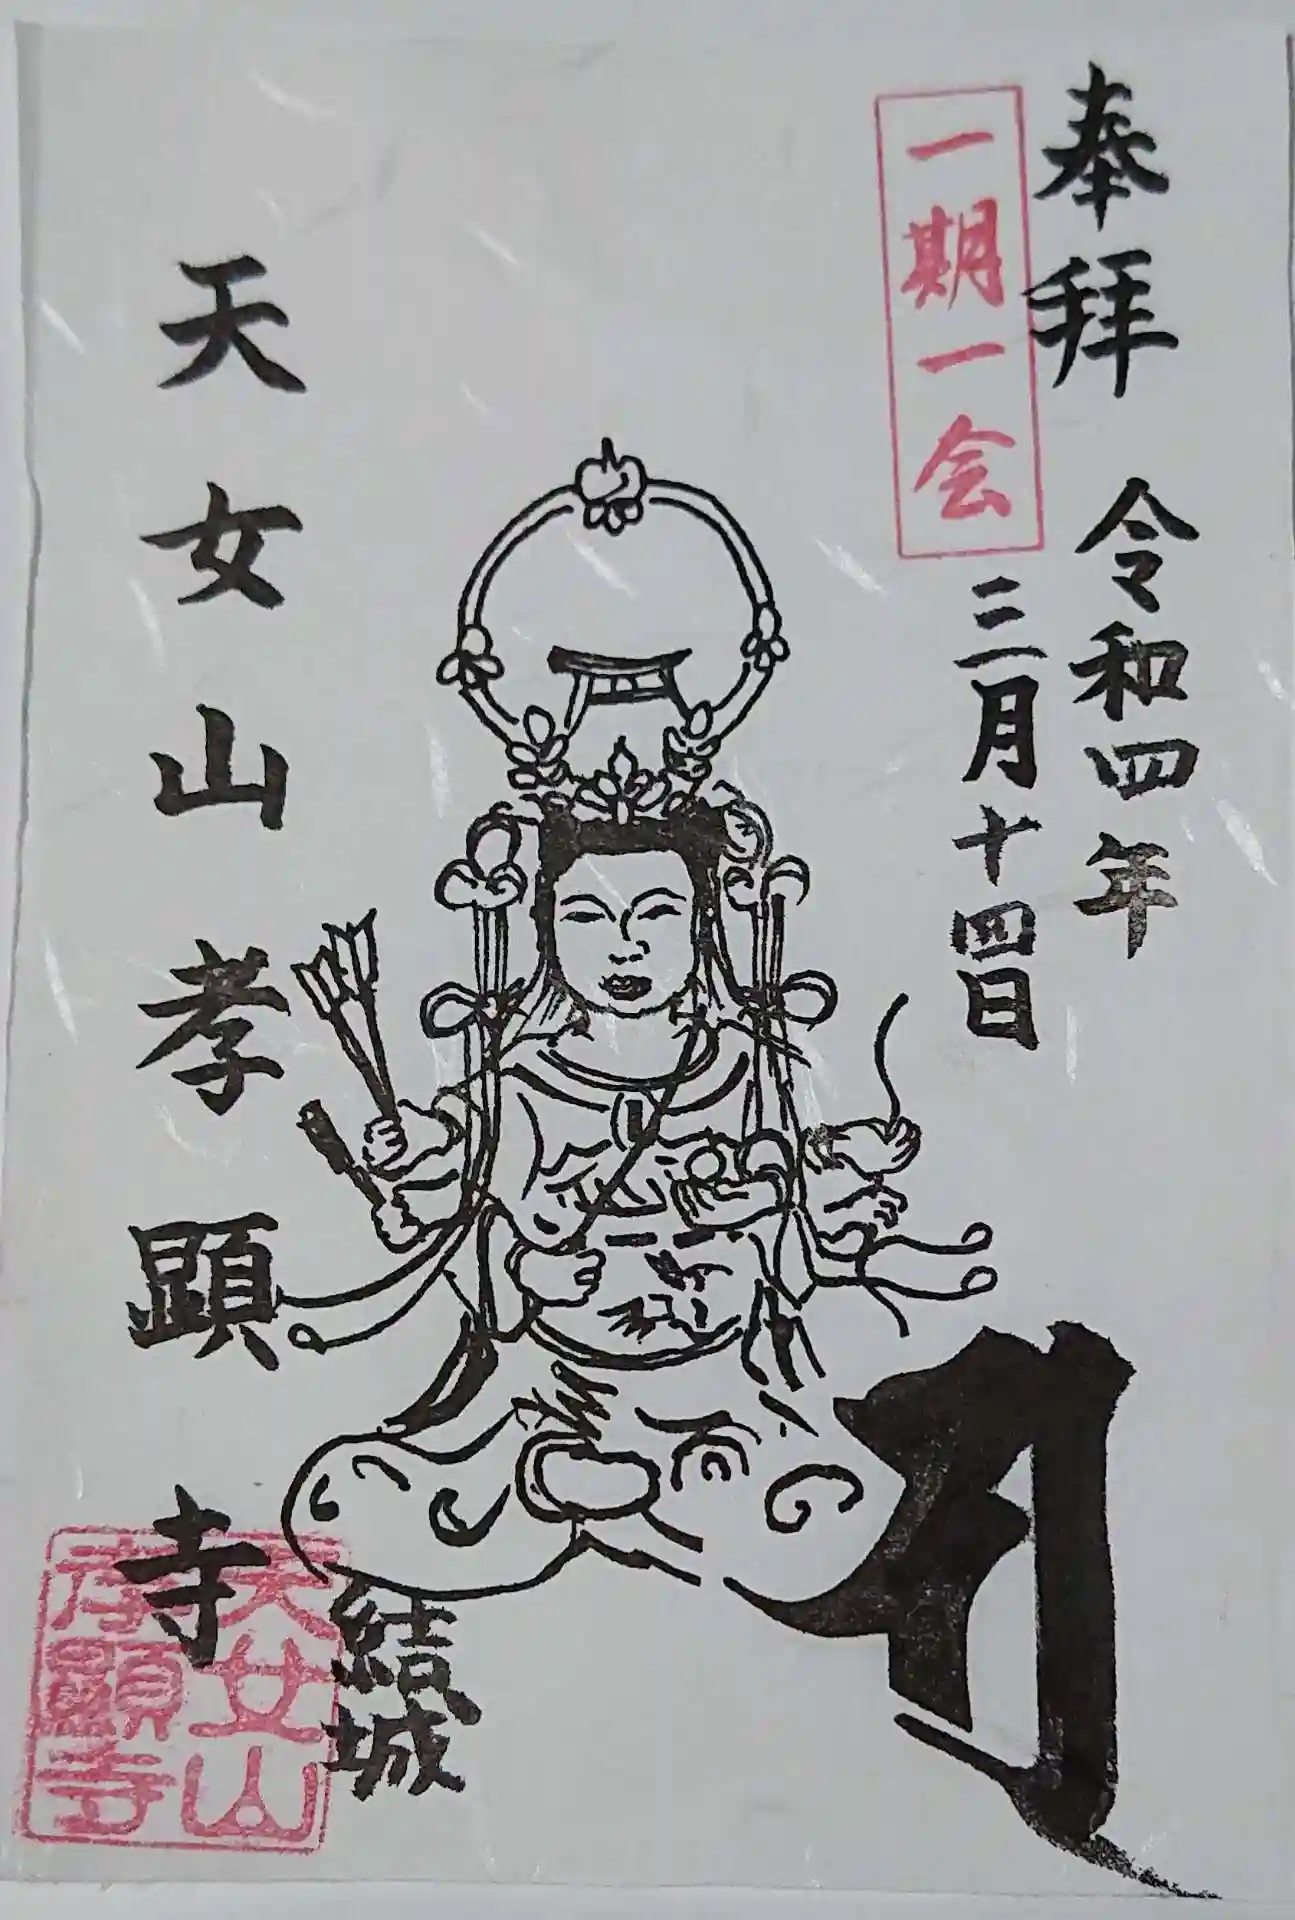 奉拝 令和四年
三月十四日
一期一会
結城
天女山孝顕寺
天女山
孝顯寺